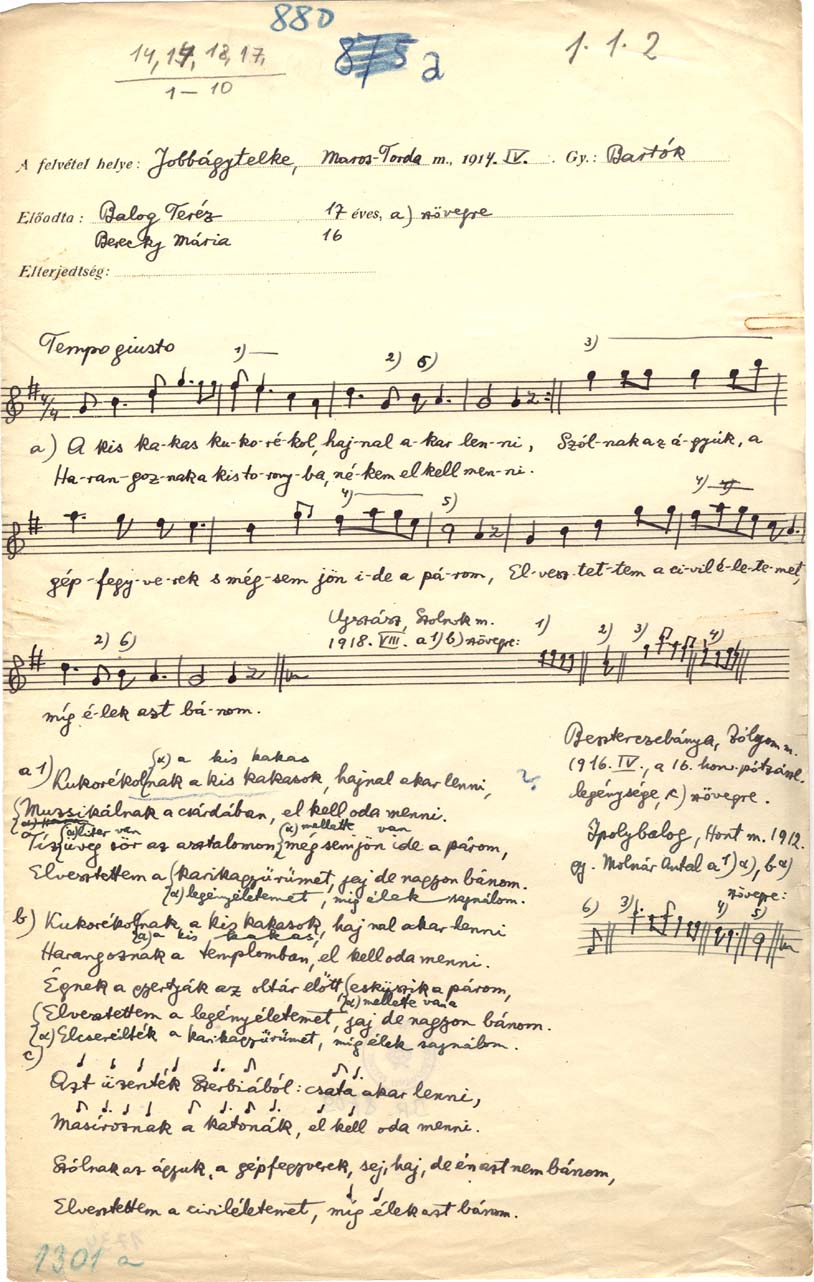 880
875 a
14, 17, 18, 17,
1–10
1. 1. 2
A felvétel helye: Jobbágytelke, Maros-Torda m., 1914. IV. Gy.: Bartók
Előadta: Balog Teréz 17 éves, a) szövegre
Berecky Mária 16
Elterjedtség:
Tempo giusto 1) 2) 6) 3)
4/4
a) A kis ka-kas ku-ko-ré-kol, haj-nal a-kar len-ni, Szól-nak az á-gyúk, a
Ha-ran-goz-nak a kis to-rony-ba, né-kem el kell men-ni.
4) 5) 4)
gép-fegy-ve-rek s még-sem jön i-de a pá-rom, El-vesz-tet-tem a ci-vil é-le-te-met,
Ujszász, Szolnok m.
1918. VIII. a 1) b) szövegre: 1) 2) 3) 4)
2) 6)
míg é-lek azt bá-nom.
α) a kis kakas
a 1) Kukorékolnak a kis kakasok, hajnal akar lenni,
Muzsikálnak a csárdában, el kell oda menni.
α) liter van α) mellette van
Tíz üveg sör az asztalomon, még sem jön ide a párom,
Elvesztettem a karikagyűrűmet, jaj de nagyon bánom.
α) legényéletemet, míg élek sajnálom.
b) Kukorékolnak a kis kakasok, hajnal akar lenni
α) a kis kakas,
Harangoznak a templomban, el kell oda menni.
Égnek a gyertyák az oltár előtt, esküszik a párom,
α) mellette van a
Elvesztettem a legényéletemet, jaj de nagyon bánom.
α) Elcserélték a karikagyűrűmet, míg élek sajnálom.
c)
Azt üzenték Szerbiából: csata akar lenni,
Masíroznak a katonák, el kell oda menni.
Szólnak az ágyuk, a gépfegyverek, sej, haj, de én azt nem bánom,
Elvesztettem a civiléletemet, míg élek azt bánom.
Beszterczebánya, Zólyom m.
1916. IV., a 16. hon. pótzászl.
legénysége, c) szövegre.
Ipolybalog, Hont m. 1912.
gy. Molnár Antal a 1) α), b α)
szövegre:
6) 3) 4) 5)
1301 a